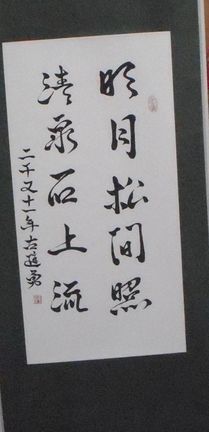 明月松间照
清泉石上流
二千又十一年古道勇